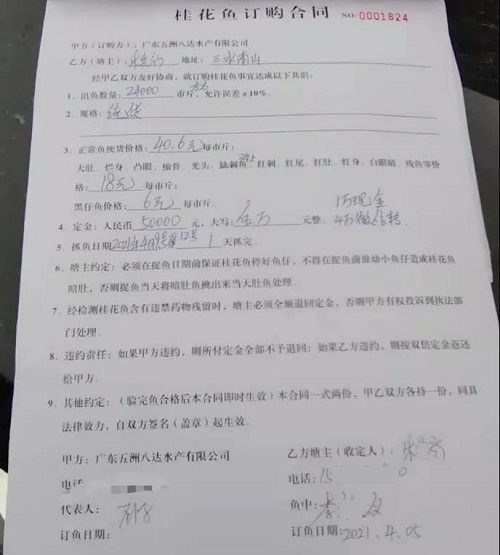 桂花鱼订购合同 NO:0001824
甲方（订购方）：广东五洲八达水产有限公司
乙方（塘主）： 地址：三水南山
经甲乙双方友好协商，就订购桂花鱼事宜达成以下共识：
1、出鱼数量：24000 市斤，允许误差±10%。
2、规格：统货
3、正常鱼统货价格：40.6元每市斤；
大肚、烂身、凸眼、缩骨、光头、缺刺、红刺、红尾、红肚、红身、白眼睛、残鱼等价
格：18元 每市斤；
黑仔鱼价格：6元每市斤。
4、定金：人民币 50000 元，大写：伍万 元整。 1万现金
4万微信转
5、抓鱼日期2021年4月 12号 1 天抓完。
6、塘主约定：必须在捉鱼日期前保证桂花鱼停好鱼仔，不得在捉鱼前放幼小鱼仔造成桂花鱼
暗肚，否则捉鱼当天将暗肚鱼挑出来当大肚鱼处理。
7、经检测桂花鱼含有违禁药物残留时，塘主必须全额退回定金，否则甲方有权投诉到执法部
门处理。
8、违约责任：如果甲方违约，则所付定金全部不予退回；如果乙方违约，则按双倍定金返还
给甲方。
9、其他约定：（验完鱼合格后本合同即时生效）本合同一式两份，甲乙双方各持一份，同具
法律效力，自双方签名（盖章）起生效。
甲方：广东五洲八达水产有限公司
乙方塘主（收定人）：
电话
电话：15 0
代表人：
鱼中：
订鱼日期：
订鱼日期：2021.4.05